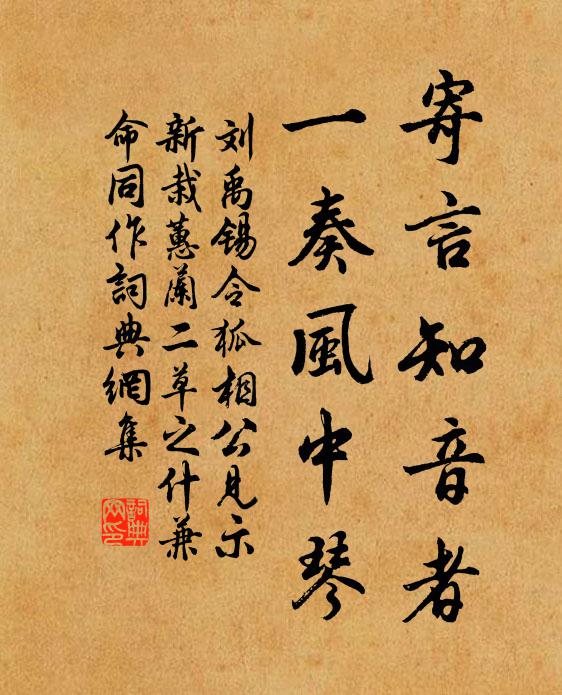 寄言知音者
一奏風中琴
刘禹锡令狐相公見示
新栽蕙蘭二草之什兼
命同作詞典網集
詞典
网印